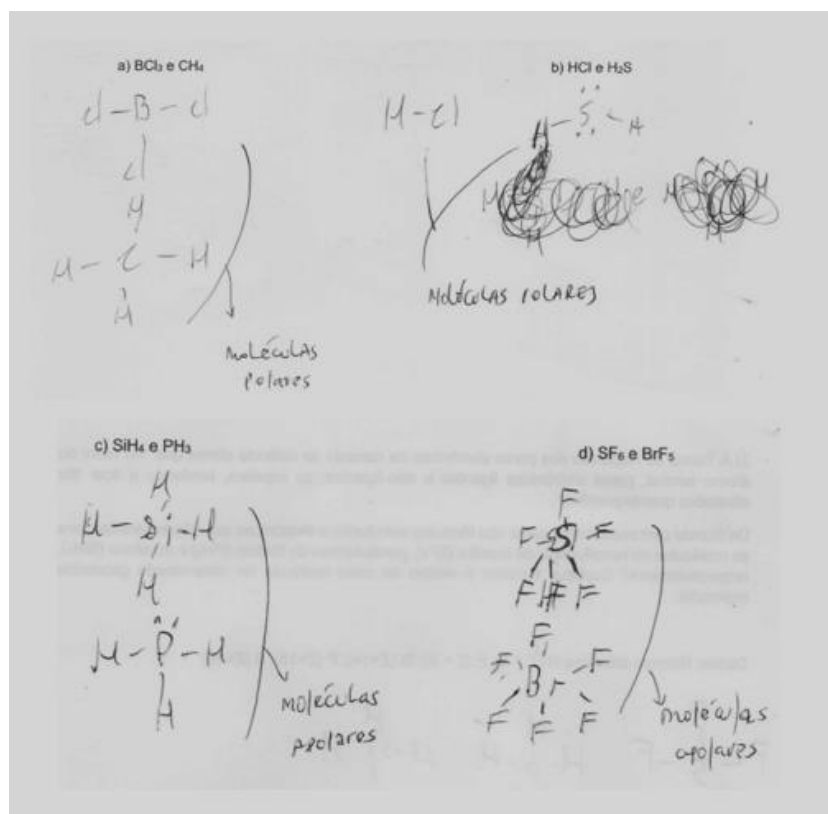 a) BCl₃ e CH₄
Cl-B-Cl
Cl
H
H-C-H
H
moléculas
polares
b) HCl e H₂S
H-Cl
H-S-H
MOLÉCULAS POLARES
c) SiH₄ e PH₃
H
H-Si-H
H
H-P-H
H
moléculas
apolares
d) SF₆ e BrF₅
F
F-S-F
F F F
F
F Br F
F F F
moléculas
apolares